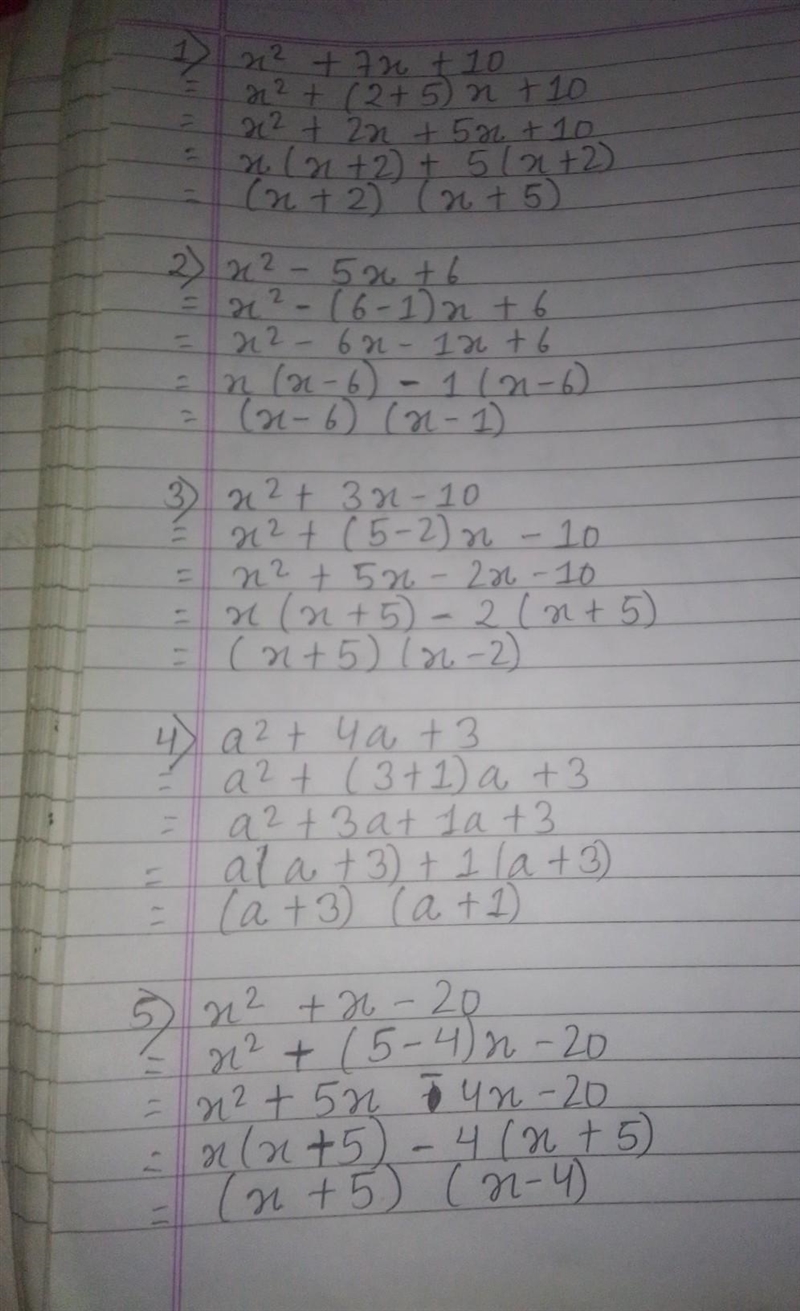 1) x² + 7x + 10
= x² + (2+5)x + 10
= x² + 2x + 5x + 10
= x(x+2) + 5(x+2)
= (x+2) (x+5)
2) x² - 5x + 6
= x² - (6-1)x + 6
= x² - 6x - 1x + 6
= x(x-6) - 1(x-6)
= (x-6) (x-1)
3) x² + 3x - 10
= x² + (5-2)x - 10
= x² + 5x - 2x - 10
= x(x+5) - 2(x+5)
= (x+5)(x-2)
4) a² + 4a + 3
= a² + (3+1)a + 3
= a² + 3a + 1a + 3
= a(a+3) + 1(a+3)
= (a+3) (a+1)
5) x² + x - 20
= x² + (5-4)x - 20
= x² + 5x - 4x - 20
= x(x+5) - 4(x+5)
= (x+5) (x-4)